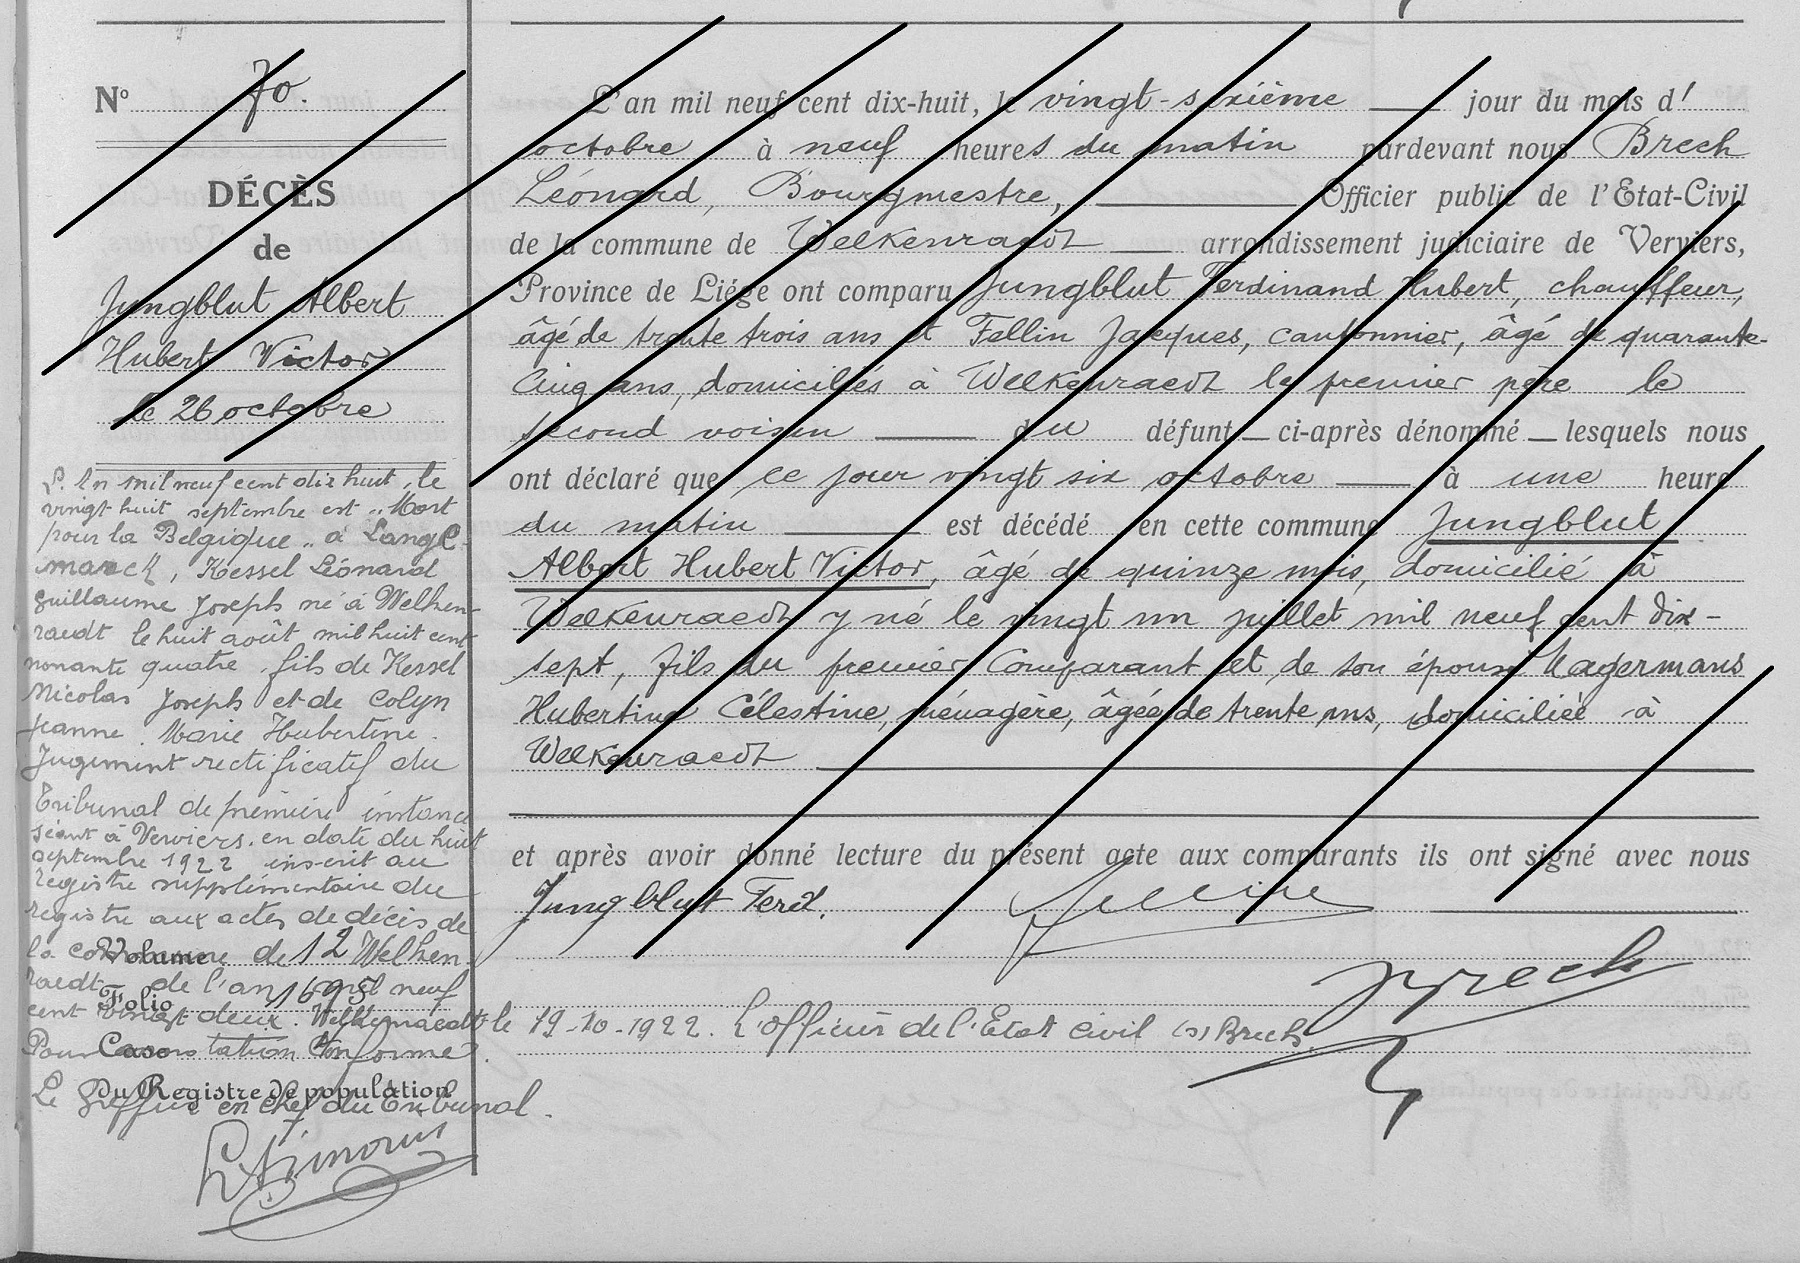 N° 70.
DÉCÈS
de
Jungblut Albert
Hubert Victor
le 26 octobre
L'an mil neuf cent dix-huit, le vingt-sixième jour du mois d'
octobre à neuf heures du matin pardevant nous Brech
Léonard, Bourgmestre, Officier public de l'Etat-Civil
de la commune de Welkenraedt arrondissement judiciaire de Verviers,
Province de Liége ont comparu Jungblut Ferdinand Hubert, chauffeur,
âgé de trente trois ans et Fellin Jacques, cantonnier, âgé de quarante-
cinq ans, domiciliés à Welkenraedt le premier père le
second voisin du défunt ci-après dénommé lesquels nous
ont déclaré que ce jour vingt six octobre à une heure
du matin est décédé en cette commune Jungblut
Albert Hubert Victor, âgé de quinze mois, domicilié à
Welkenraedt y né le vingt un juillet mil neuf cent dix-
sept, fils du premier comparant et de son épouse Hagermans
Hubertine Célestine, ménagère, âgée de trente ans, domiciliée à
Welkenraedt
et après avoir donné lecture du présent acte aux comparants ils ont signé avec nous
Jungblut Ferd. Fellin
Brech
L'An mil neuf cent dix huit, le
vingt huit septembre est "Mort
pour la Belgique" à Lange-
marck, Kessel Léonard
Guillaume Joseph né à Welken-
raedt le huit août mil huit cent
nonante quatre, fils de Kessel
Nicolas Joseph et de Colyn
Jeanne Marie Hubertine.
Jugement rectificatif du
Tribunal de première instance
séant à Verviers, en date du huit
septembre 1922 inscrit au
registre supplémentaire du
registre aux actes de décès de
la commune de Welken-
raedt de l'an mil neuf
cent vingt deux. Welkenraedt le 19-10-1922. L'officier de l'Etat civil (s) Brech.
Pour conforme.
Le Greffier en chef du Tribunal.
Volume 12
Folio 1695
Case
du Registre de population